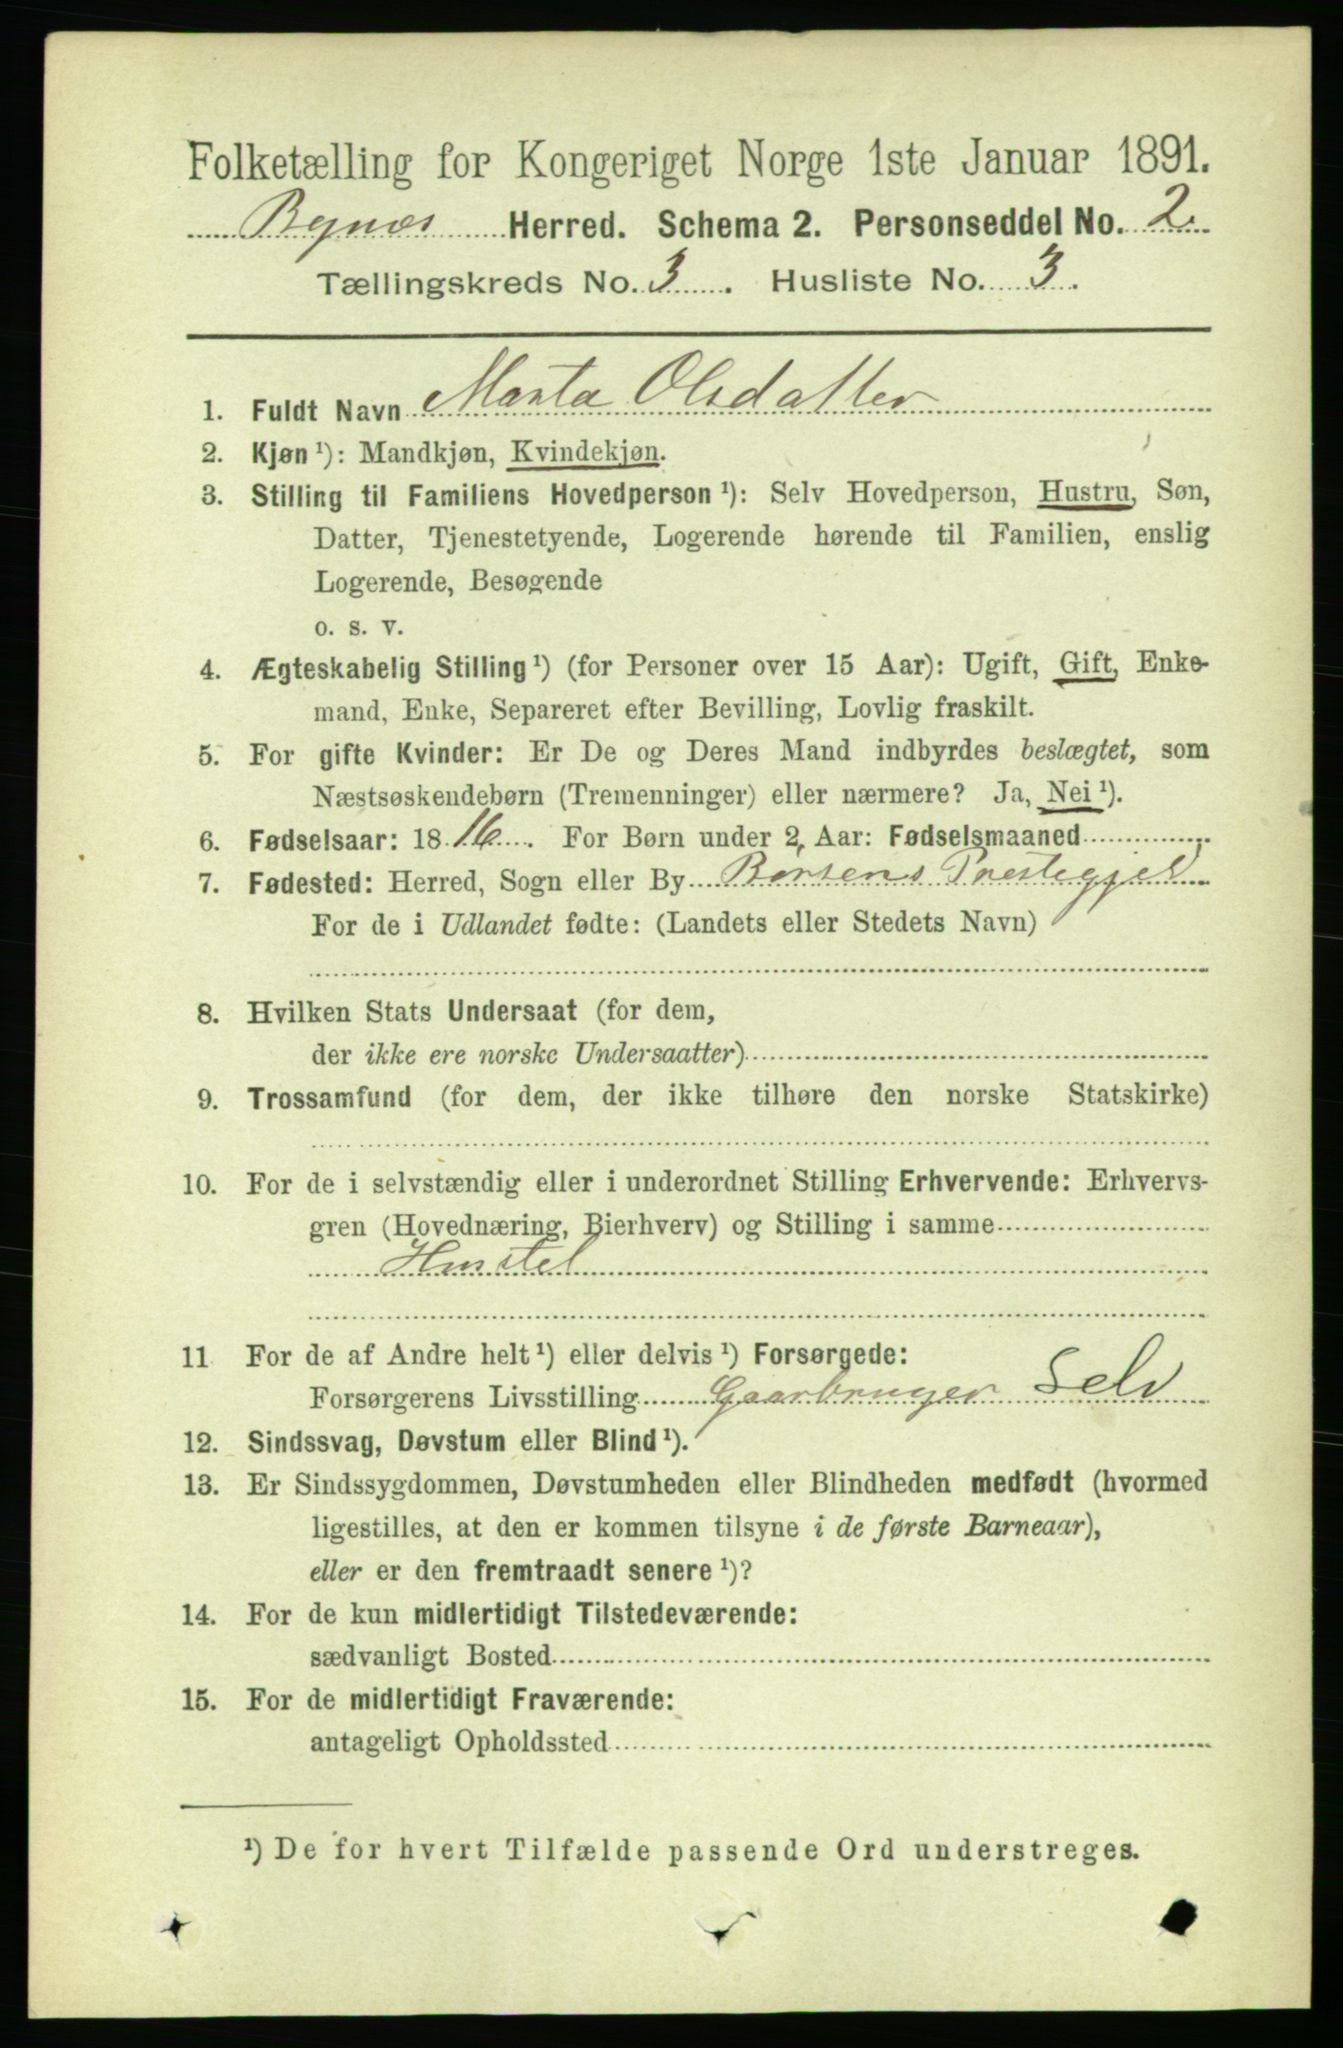 Folketælling for Kongeriget Norge 1ste Januar 1891.
Bynæs Herred. Schema 2. Personseddel No. 2.
Tællingskreds No. 3. Husliste No. 3.
1. Fuldt Navn Marta Olsdatter
2. Kjøn ¹): Mandkjøn, Kvindekjøn.
3. Stilling til Familiens Hovedperson ¹): Selv Hovedperson, Hustru, Søn,
Datter, Tjenestetyende, Logerende hørende til Familien, enslig
Logerende, Besøgende
o. s. v.
4. Ægteskabelig Stilling ¹) (for Personer over 15 Aar): Ugift, Gift, Enke-
mand, Enke, Separeret efter Bevilling, Lovlig fraskilt.
5. For gifte Kvinder: Er De og Deres Mand indbyrdes beslægtet, som
Næstsøskendebørn (Tremenninger) eller nærmere? Ja, Nei ¹).
6. Fødselsaar: 1816. For Børn under 2 Aar: Fødselsmaaned
7. Fødested: Herred, Sogn eller By Børsens Prestegjel
For de i Udlandet fødte: (Landets eller Stedets Navn)
8. Hvilken Stats Undersaat (for dem,
der ikke ere norske Undersaatter)
9. Trossamfund (for dem, der ikke tilhøre den norske Statskirke)
10. For de i selvstændig eller i underordnet Stilling Erhvervende: Erhvervs-
gren (Hovednæring, Bierhverv) og Stilling i samme
Hustel
11 For de af Andre helt ¹) eller delvis ¹) Forsørgede:
Forsørgerens Livsstilling Gaarbruger Selv
12. Sindssvag, Døvstum eller Blind ¹).
13. Er Sindssygdommen, Døvstumheden eller Blindheden medfødt (hvormed
ligestilles, at den er kommen tilsyne i de første Barneaar),
eller er den fremtraadt senere ¹)?
14. For de kun midlertidigt Tilstedeværende:
sædvanligt Bosted
15. For de midlertidigt Fraværende:
antageligt Opholdssted
¹) De for hvert Tilfælde passende Ord understreges.